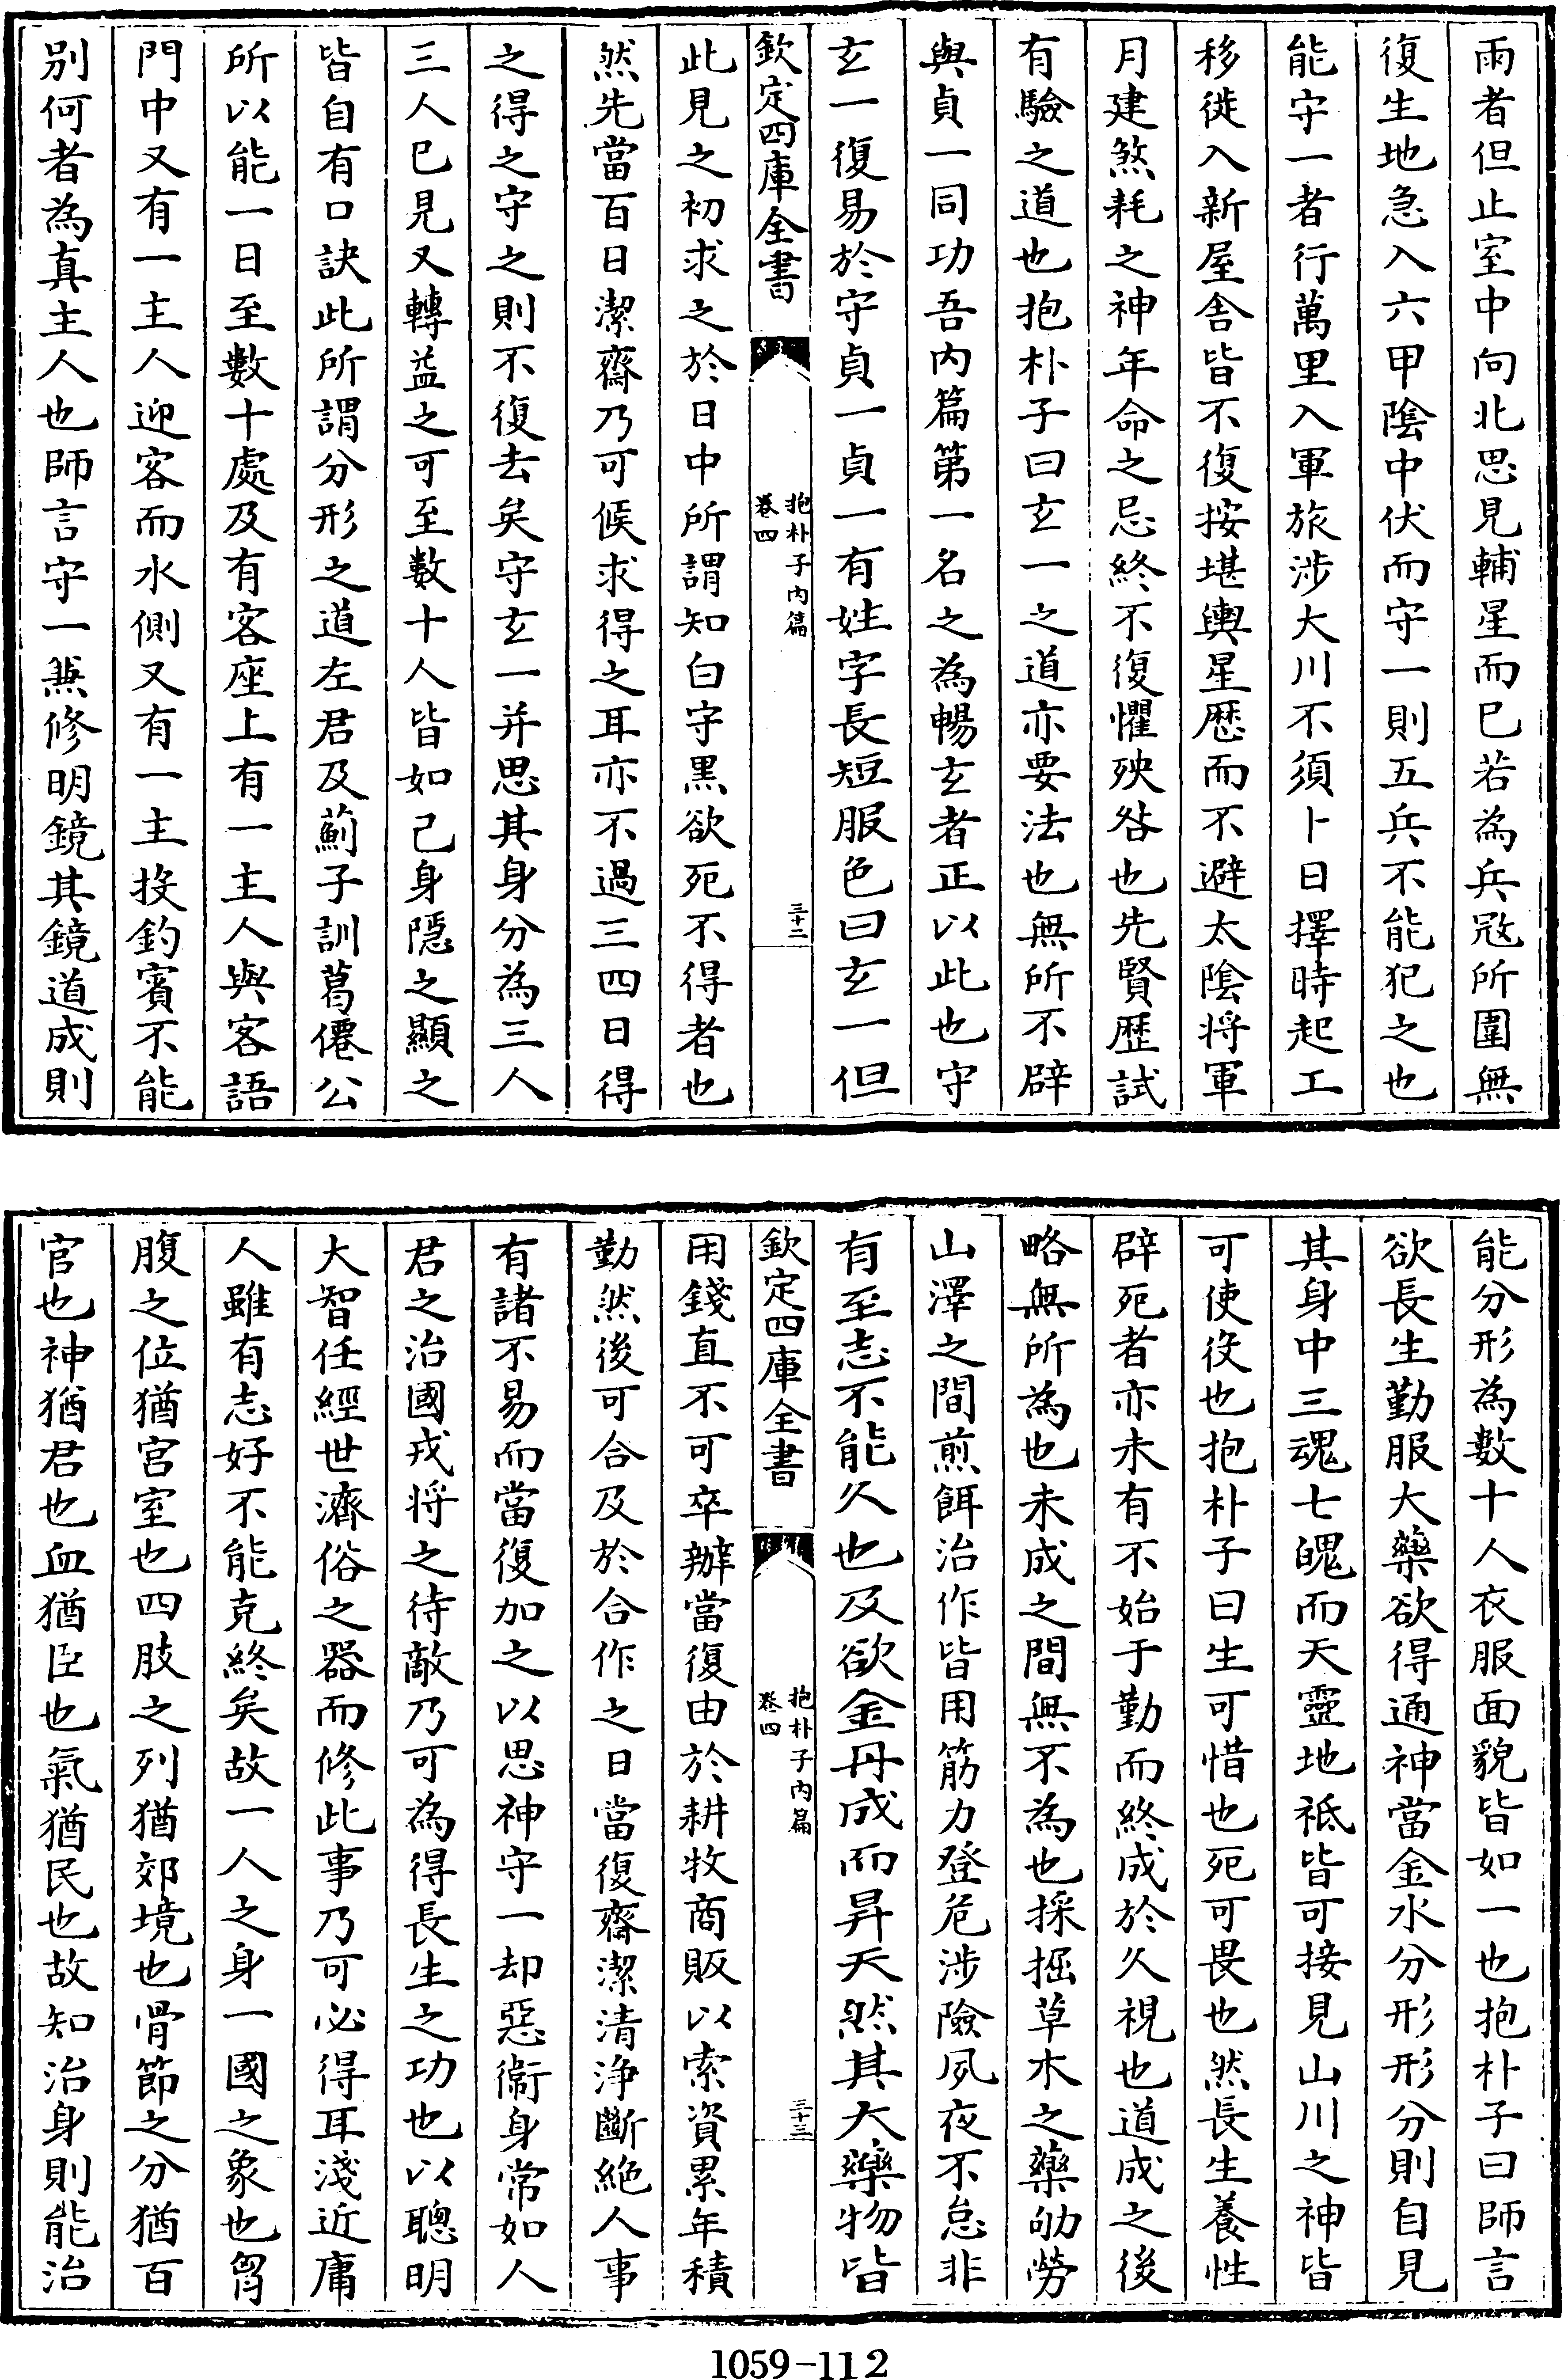 雨者但止室中向北思見輔星而已若為兵冦所圍無
復生地急入六甲陰中伏而守一則五兵不能犯之也
能守一者行萬里入軍旅涉大川不須卜日擇時起工
移徙入新屋舍皆不復按堪輿星歴而不避太陰将軍
月建煞耗之神年命之忌終不復懼殃咎也先賢歴試
有驗之道也抱朴子曰玄一之道亦要法也無所不辟
與貞一同功吾内篇第一名之為暢玄者正以此也守
玄一復易於守貞一貞一有姓字長短服色曰玄一但
欽定四庫全書
抱朴子内篇
卷四
三十二
此見之初求之於日中所謂知白守黑欲死不得者也
然先當百日潔齋乃可候求得之耳亦不過三四日得
之得之守之則不復去矣守玄一并思其身分為三人
三人已見又轉益之可至數十人皆如己身隱之顯之
皆自有口訣此所謂分形之道左君及薊子訓葛僊公
所以能一日至數十處及有客座上有一主人與客語
門中又有一主人迎客而水側又有一主投釣賓不能
别何者為真主人也師言守一兼修明鏡其鏡道成則
能分形為數十人衣服面貌皆如一也抱朴子曰師言
欲長生勤服大藥欲得通神當金水分形形分則自見
其身中三魂七魄而天靈地祇皆可接見山川之神皆
可使役也抱朴子曰生可惜也死可畏也然長生養性
辟死者亦未有不始于勤而終成於久視也道成之後
略無所為也未成之間無不為也採掘草木之藥劬勞
山澤之間煎餌治作皆用筋力登危涉險夙夜不怠非
有至志不能久也及欲金丹成而昇天然其大藥物皆
欽定四庫全書
抱朴子内篇
卷四
三十三
用錢直不可卒辦當復由於耕牧商販以索資累年積
勤然後可合及於合作之日當復齋潔清浄斷絶人事
有諸不易而當復加之以思神守一却惡衛身常如人
君之治國戎将之待敵乃可為得長生之功也以聰明
大智任經世濟俗之器而修此事乃可必得耳淺近庸
人雖有志好不能克終矣故一人之身一國之象也胷
腹之位猶宫室也四肢之列猶郊境也骨節之分猶百
官也神猶君也血猶臣也氣猶民也故知治身則能治
1059-112